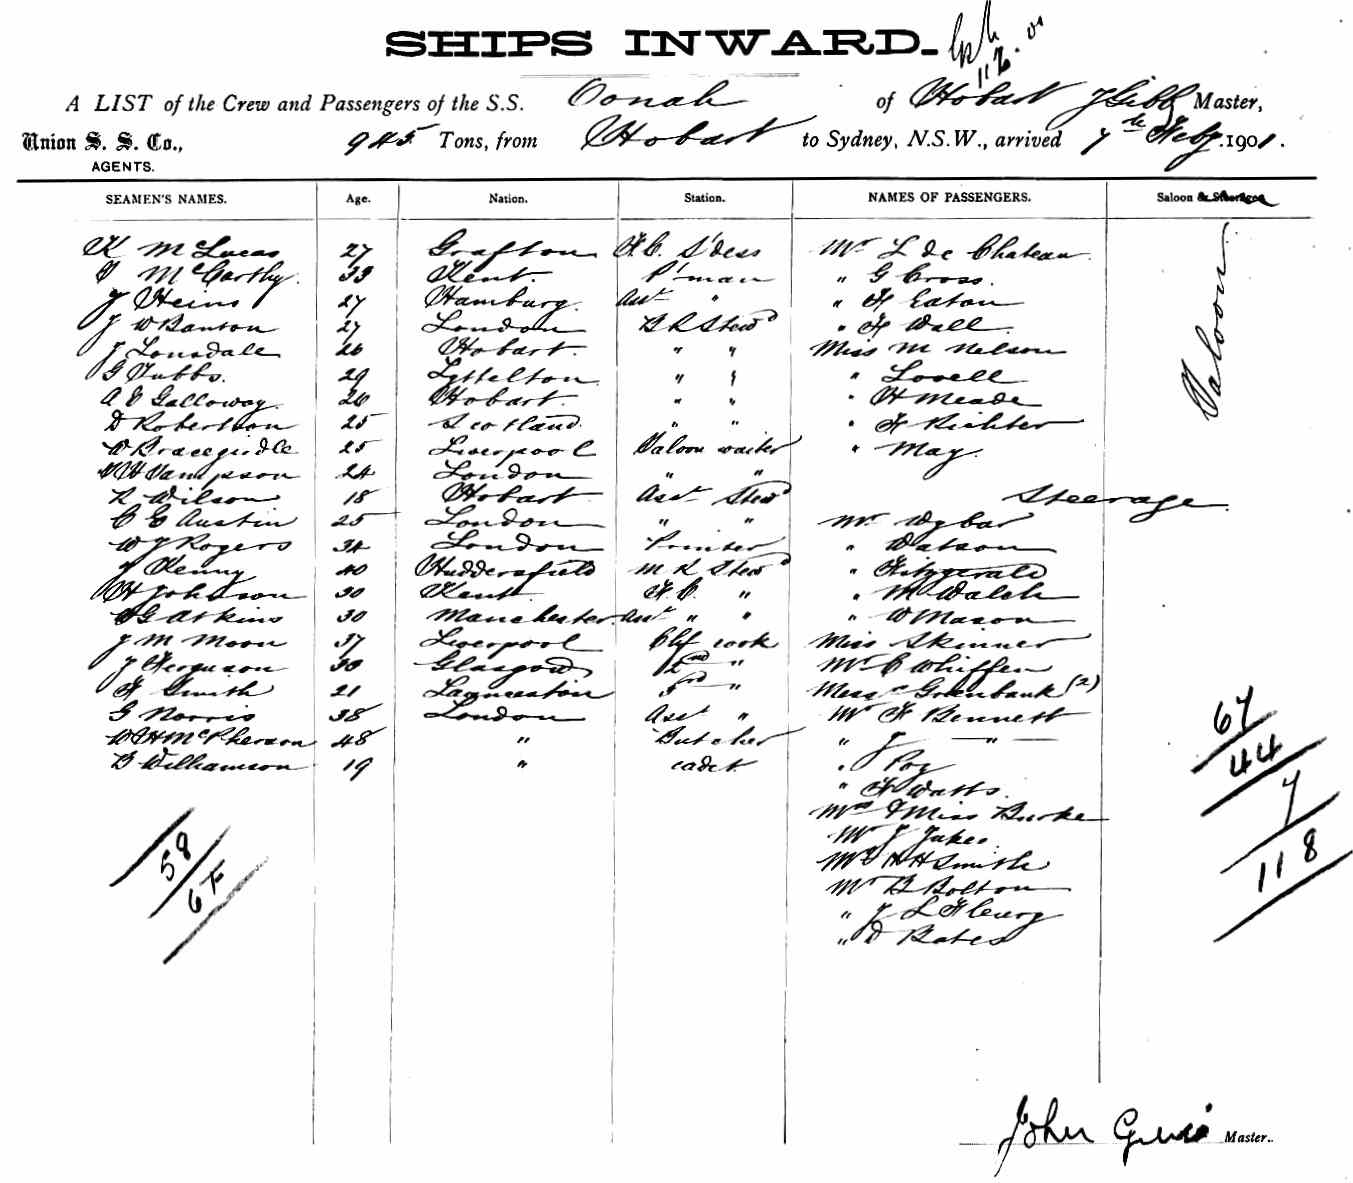 SHIPS INWARD.
A LIST of the Crew and Passengers of the S.S. Oonah of Hobart J Gibb Master,
Union S. S. Co., 945 Tons, from Hobart to Sydney, N.S.W., arrived 7th Feby. 1901.
AGENTS.
SEAMEN'S NAMES. Age. Nation. Station. NAMES OF PASSENGERS. Saloon & Steerage
K McLucas 27 Grafton F.C. S'dess Mr L de Chateau
McCarthy 33 Kent P'man " G Cross
J Heins 27 Hamburg Asst " " H Eaton
J W Banton 27 London B R Stewd " H Wall
J Lonsdale 26 Hobart " " Miss M Nelson
G Tubbs 29 Lyttelton " " " Lovell
A E Galloway 26 Hobart " " " H Meade
D Robertson 25 Scotland " " " Richter
W Bracegirdle 25 Liverpool Saloon waiter " May
Saloon
Vampson 24 London " "
R Wilson 18 Hobart Asst Stewd Steerage
C E Austin 25 London " " Mr Wybar
W J Rogers 34 London " Watson
J Kenny 40 Huddersfield M R Stewd " Fitzgerald
H Johnson 30 Kent F.C. " " M Walch
G Atkins 30 Manchester Asst " " " W Mason
J M Moon 37 Liverpool Chf cook Miss Skinner
J Ferguson 30 Glasgow 2nd " Mr C Whiffen
F Smith 21 Launceston 3rd " Greenbank (2)
G Norris 38 London Asst " Mr F Bennett
W H McPherson 48 " Butcher " J "
B Williamson 19 " cadet " Poy
" F Watts
Mrs & Miss Burke
Mr J Jakes
H H Smith
Mr B Bolton
" J L Fleury
" D Bates
58
67
67
44
7
118
John Master..